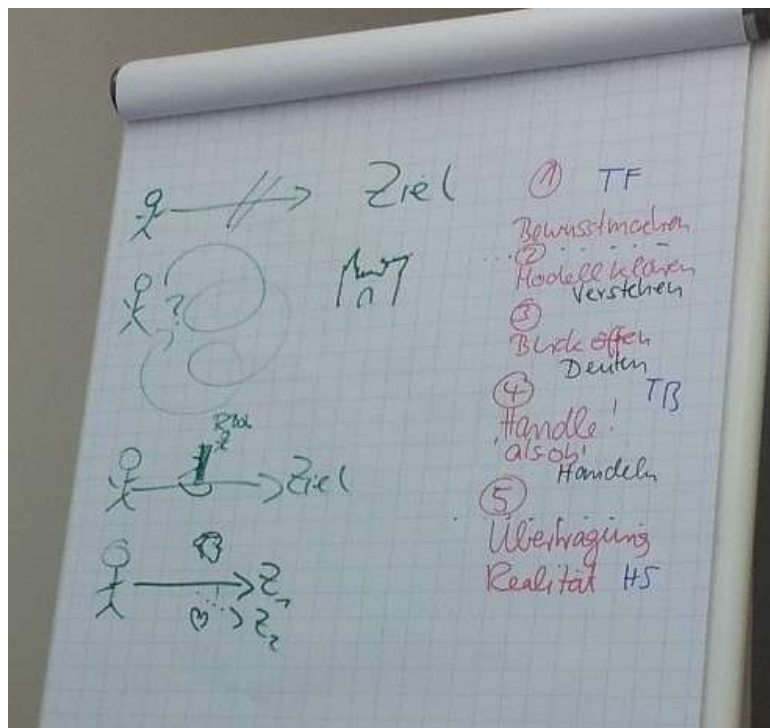 Ziel
?
?
Ziel
Z1
Z2
① TF
Bewusstmachen
②
Modell klären
Verstehen
③
Blick öffen
Deuten
④ TB
Handle!
'als ob'
Handeln
⑤
Übertragung
Realität HS